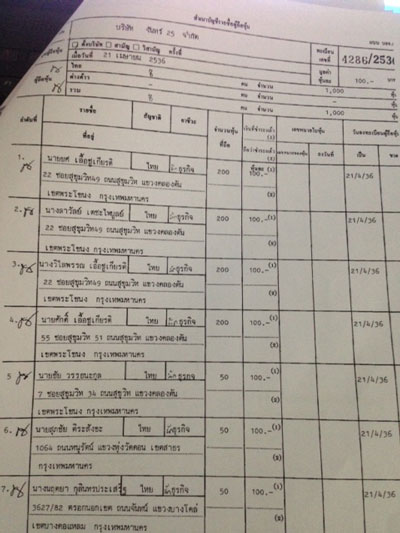 สำเนาบัญชีรายชื่อผู้ถือหุ้น
บริษัท จันทร์ 25 จำกัด
ตั้งบริษัท สามัญ วิสามัญ ครั้งที่
เมื่อวันที่ 21 เมษายน 2536
ทะเบียนเลขที่ 4286/253
ผู้ถือหุ้น ไทย 8 คน จำนวน 1,000 หุ้น
มูลค่าหุ้นละ 100.-
ต่างด้าว - คน จำนวน - หุ้น
รวม 8 คน จำนวน 1,000 หุ้น
ลำดับที่ รายชื่อ สัญชาติ อาชีพ จำนวนหุ้นที่ถือ เงินที่ชำระแล้ว (1) เลขหมายใบหุ้น วันลงทะเบียนผู้ถือหุ้น
ที่อยู่ (2) ลงวันที่ เป็น ขาด
1. นายยศ เอื้อชูเกียรติ ไทย ธุรกิจ 200 หุ้นละ 100.- (1) 21/4/36
22 ซอยสุขุมวิท49 ถนนสุขุมวิท แขวงคลองตัน (2)
เขตพระโขนง กรุงเทพมหานคร
2. นางลาวัลย์ ไทย ธุรกิจ 200 100.- (1) 21/4/36
22 ซอยสุขุมวิท49 ถนนสุขุมวิท แขวงคลองตัน (2)
เขตพระโขนง กรุงเทพมหานคร
3. นางวิไลพรรณ เอื้อชูเกียรติ ไทย ธุรกิจ 200 100.- (1) 21/4/36
22 ซอยสุขุมวิท49 ถนนสุขุมวิท แขวงคลองตัน (2)
เขตพระโขนง กรุงเทพมหานคร
4. นายศักดิ์ เอื้อชูเกียรติ ไทย ธุรกิจ 200 100.- (1) 21/4/36
55 ซอยสุขุมวิท 51 ถนนสุขุมวิท แขวงคลองตัน (2)
เขตพระโขนง กรุงเทพมหานคร
5 นายชัย วรรธนะกุล ไทย ธุรกิจ 50 100.- (1) 21/4/36
7 ซอยสุขุมวิท 34 ถนนสุขุมวิท แขวงคลองตัน (2)
เขตพระโขนง กรุงเทพมหานคร
6. นายสุภชัย ไทย ธุรกิจ 50 100.- (1) 21/4/36
1064 ถนนพนูรัตน์ แขวงทุ่งวัดดอน เขตสาธร (2)
กรุงเทพมหานคร
7. นางนฤตยา ไทย ธุรกิจ 50 100.- (1) 21/4/36
3627/82 ตรอกนอกเขต ถนนจันทน์ แขวงบางโคล่ (2)
เขตบางคอแหลม กรุงเทพมหานคร